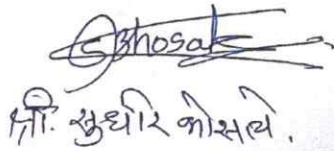 SBhosale
श्री. सुधीर भोसले.